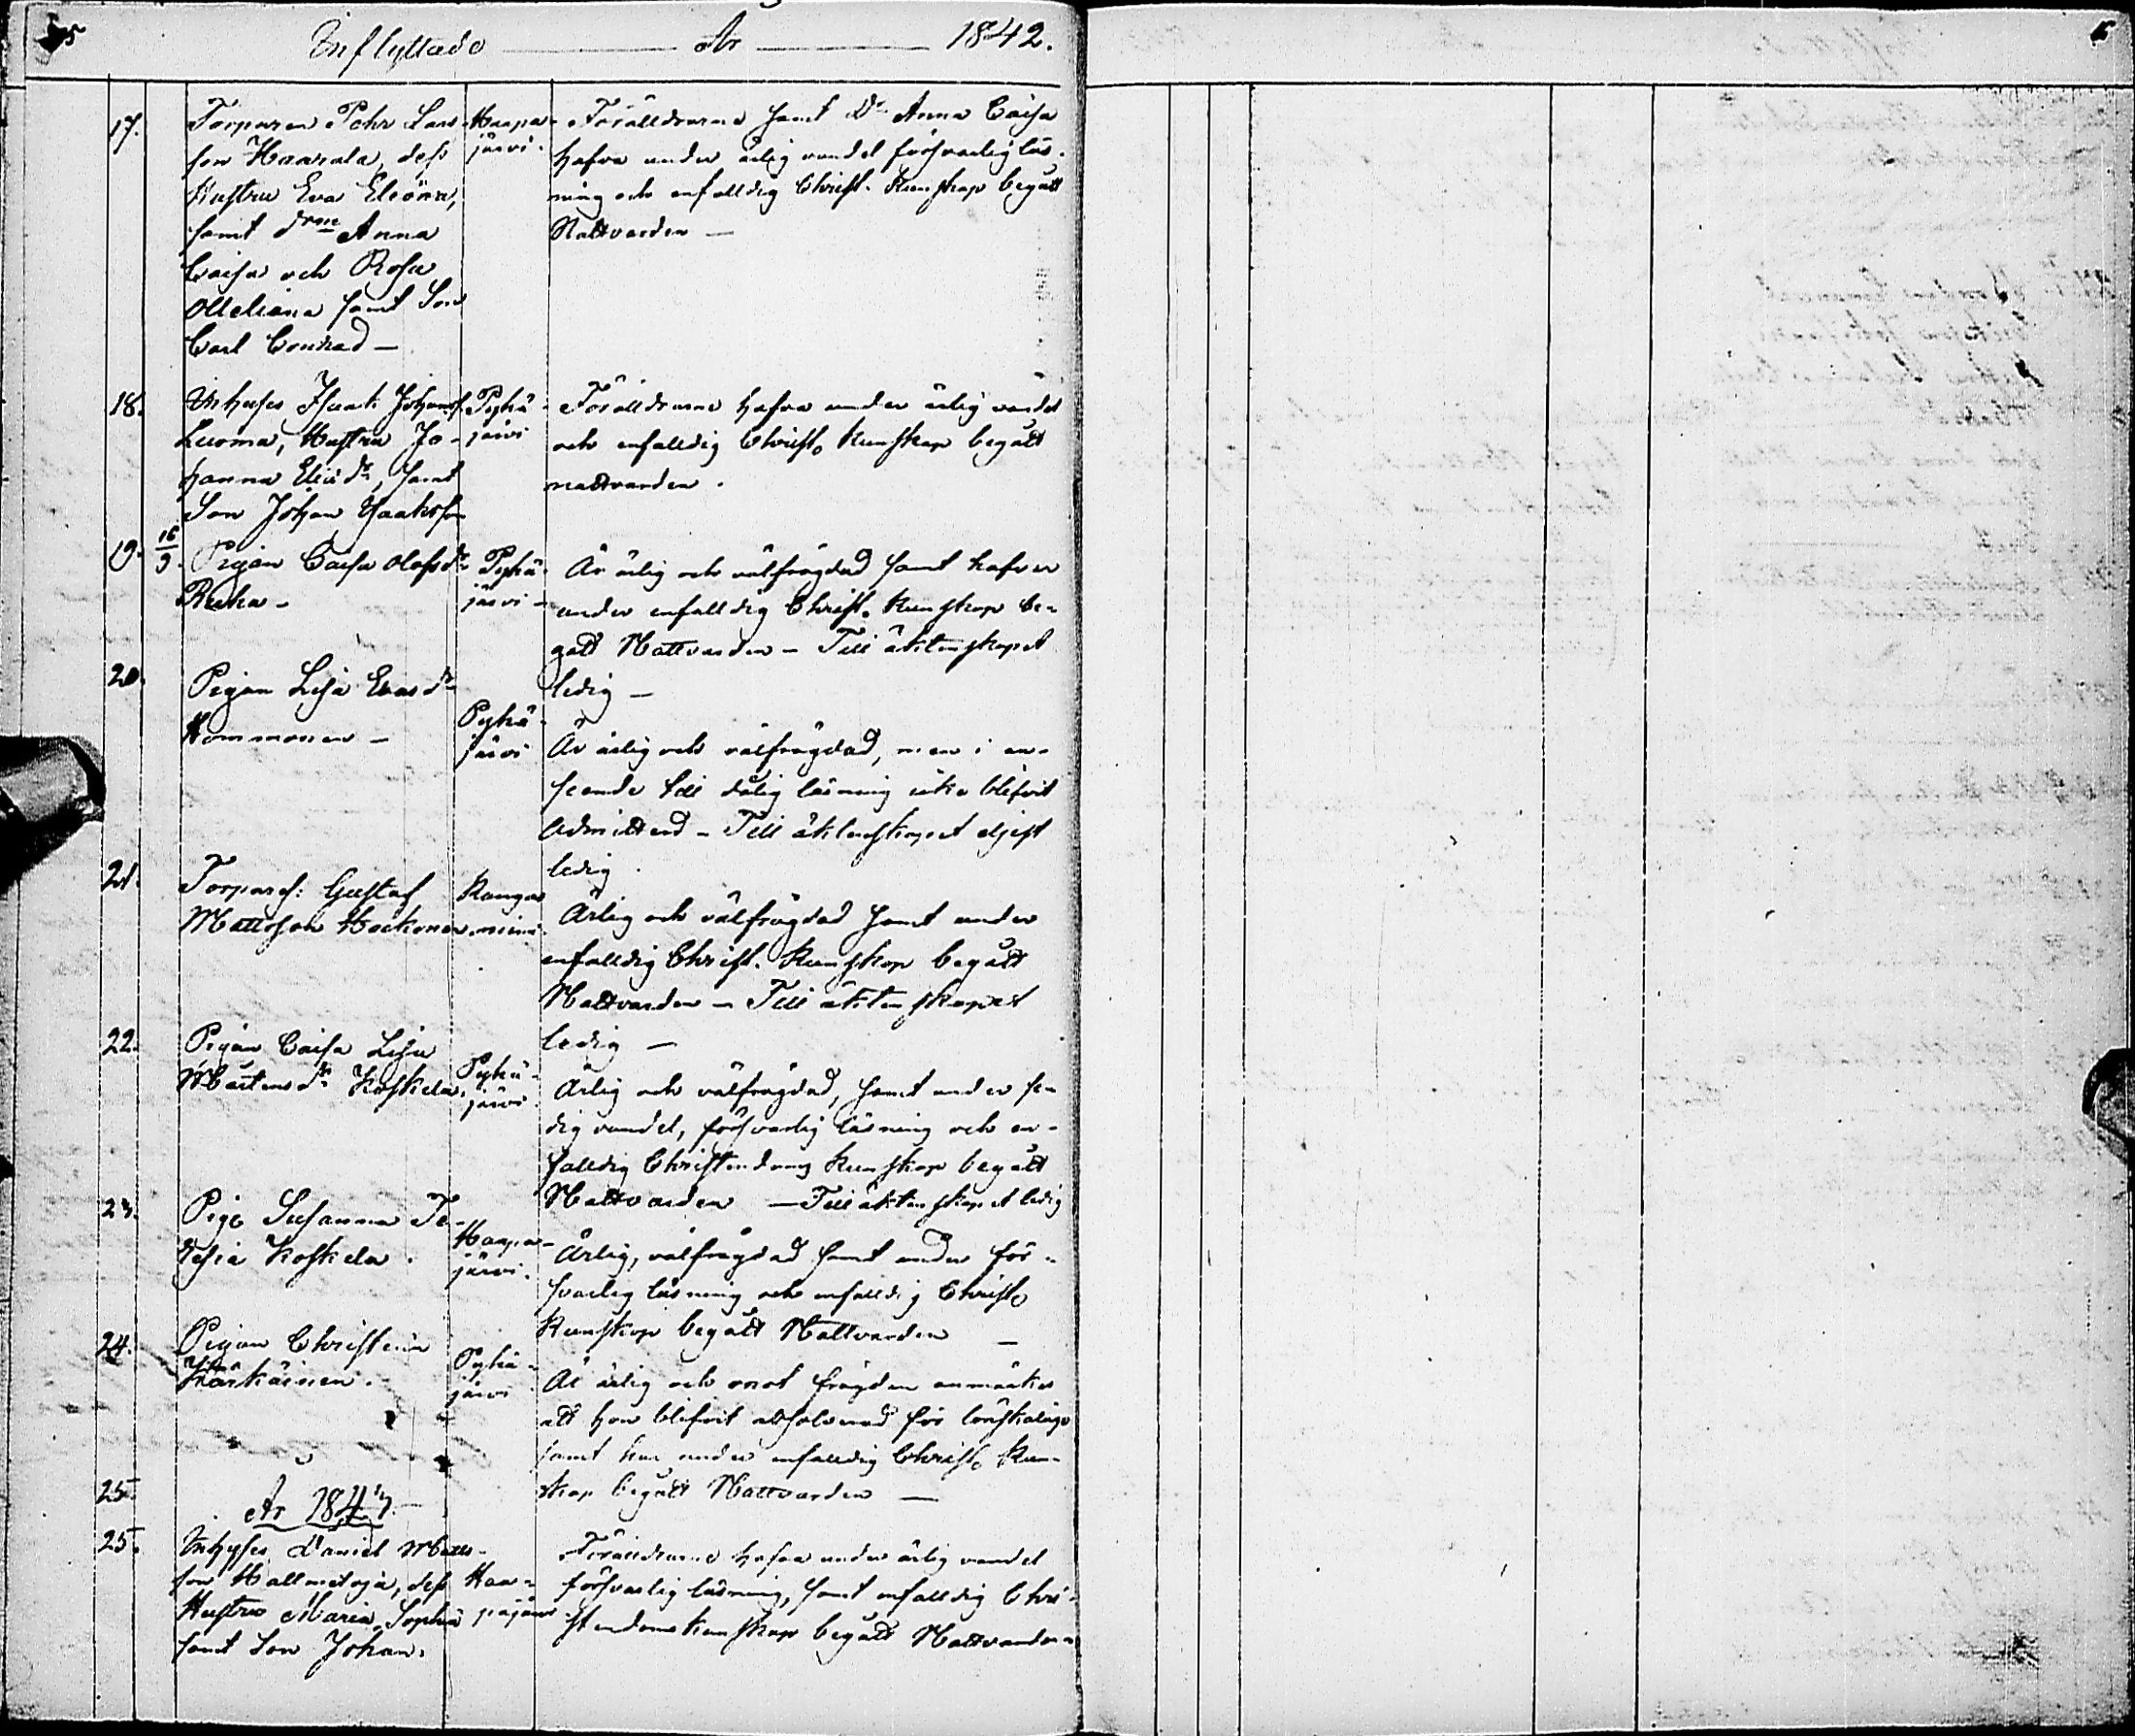 5
Inflyttade År 1842.
17. Torparen Pehr Lars-
son Haarala, dess
Hustru Eva Eleöna,
samt Drne Anna
Caisa och Rosa
Meliana samt Son
Carl Conrad —
Haapa-
järvi.
Föräldrarne samt Dr Anna Caisa
hafva under ärlig vandel försvarlig läs-
ning och enfalldig Christ. Kunskap begått
Nattvarden —
18. Inhyses Isaak Johanss.
Luoma, Hustru Jo-
hanna Elisdr, samt
Son Johan Isaaksson
Pyhä-
järvi
Föräldrarne hafva under ärlig vandel
och enfalldig Christ. Kunskap begått
nattvarden.
19. 16/3. Pigan Caisa Olofsdr
Ruha -
Pyhä-
järvi -
Är ärlig och välfrägdad samt hafver
under enfalldig Christ. Kunskap be-
gått Nattvarden - Till äktenskapet
ledig —
20. Pigan Lisa Evasdr
Kommonen -
Pyhä-
järvi
Är ärlig och välfrägdad, men i an-
seende till dålig läsning icke blifvit
admitterad - Till äktenskapet
ledig.
21. Torpares: Gustaf
Mattsson Hockonen
Kangas
niemi.
Ärlig och välfrägdad samt under
enfalldig Christ. Kunskap begått
Nattvarden - Till äktenskapet
ledig —
22. Pigan Caisa Lisa
Mårtensdr Koskela.
Pyhä-
järvi.
Ärlig och välfrägdad, samt under se-
dig vandel, försvarlig läsning och en-
falldig Christendoms Kunskap begått
Nattvarden — Till äktenskapet ledig
23. Pig. Susanna Te-
resia Koskela.
Haapa-
järvi.
Ärlig, välfrägdad samt under för-
svarlig läsning och enfalldig Christ.
Kunskap begått Nattvarden —
24. Pigan Christina
Kärkäinen.
Pyhä-
järvi
Är ärlig och mot frägden anmärkes
att hon blifvit absolverad för lönskaläge
samt har under enfalldig Christ. Kun-
skap begått Nattvarden —
25.
År 1843.
25. Inhyses Daniel Matts-
son Hallmetsjä, dess
Hustru Maria Sophia
samt Son Johan.
Haa-
pajärvi
Föräldrarne hafva under ärlig vandel
försvarlig läsning, samt enfalldig Chri-
stendomskunskap begått Nattvarden
6